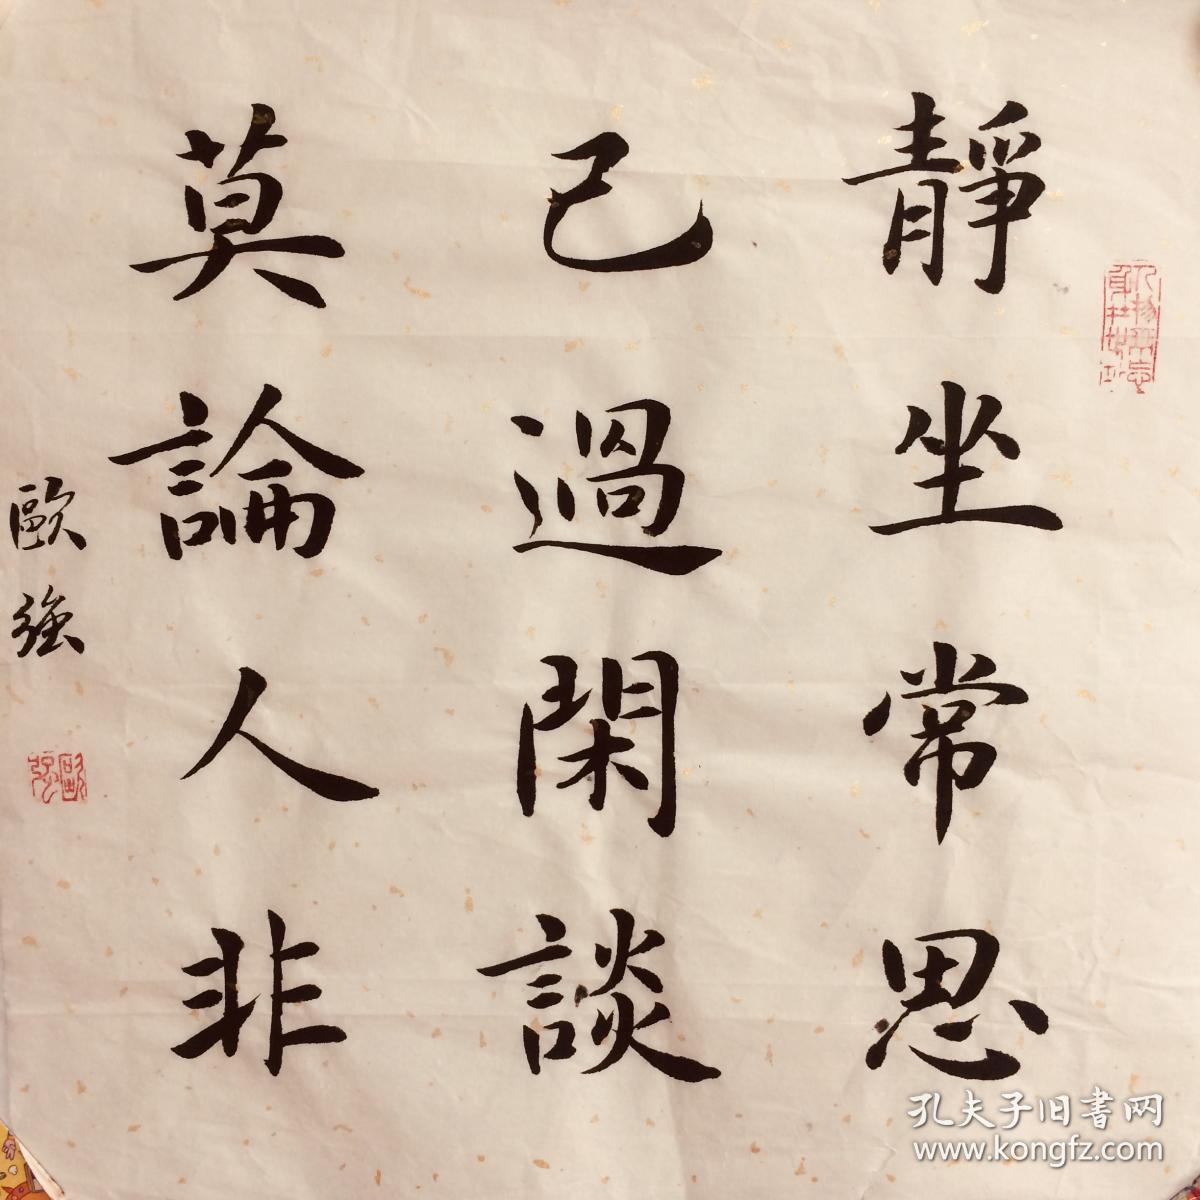 靜坐常思
己過閑談
莫論人非
歐強
歐強
孔夫子旧书网
www.kongfz.com